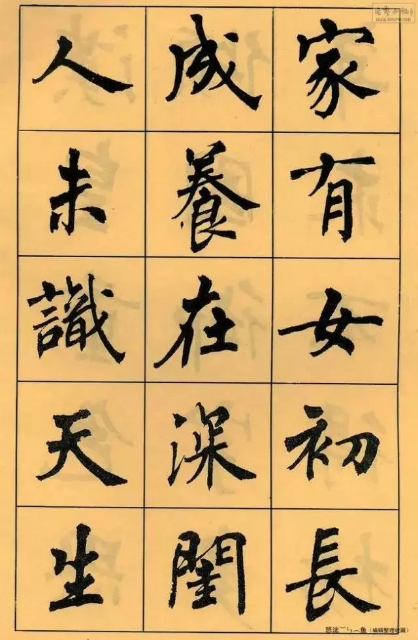 家有女初長
成養在深閨
人未識天生